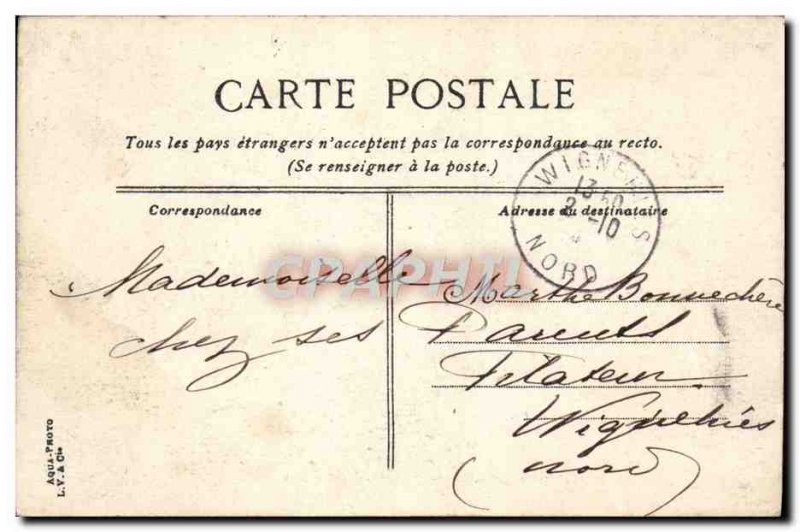 CARTE POSTALE
Tous les pays étrangers n'acceptent pas la correspondance au recto.
(Se renseigner à la poste.)
Correspondance
Adresse du destinataire
WIGNEHIES
13 50
2 -10
NORD
CPAPHIL
Mademoiselle Marthe Bonnechère
chez ses Parents
Filateur
Wignehies
(Nord)
AQUA-PHOTO
L.V. & Cie